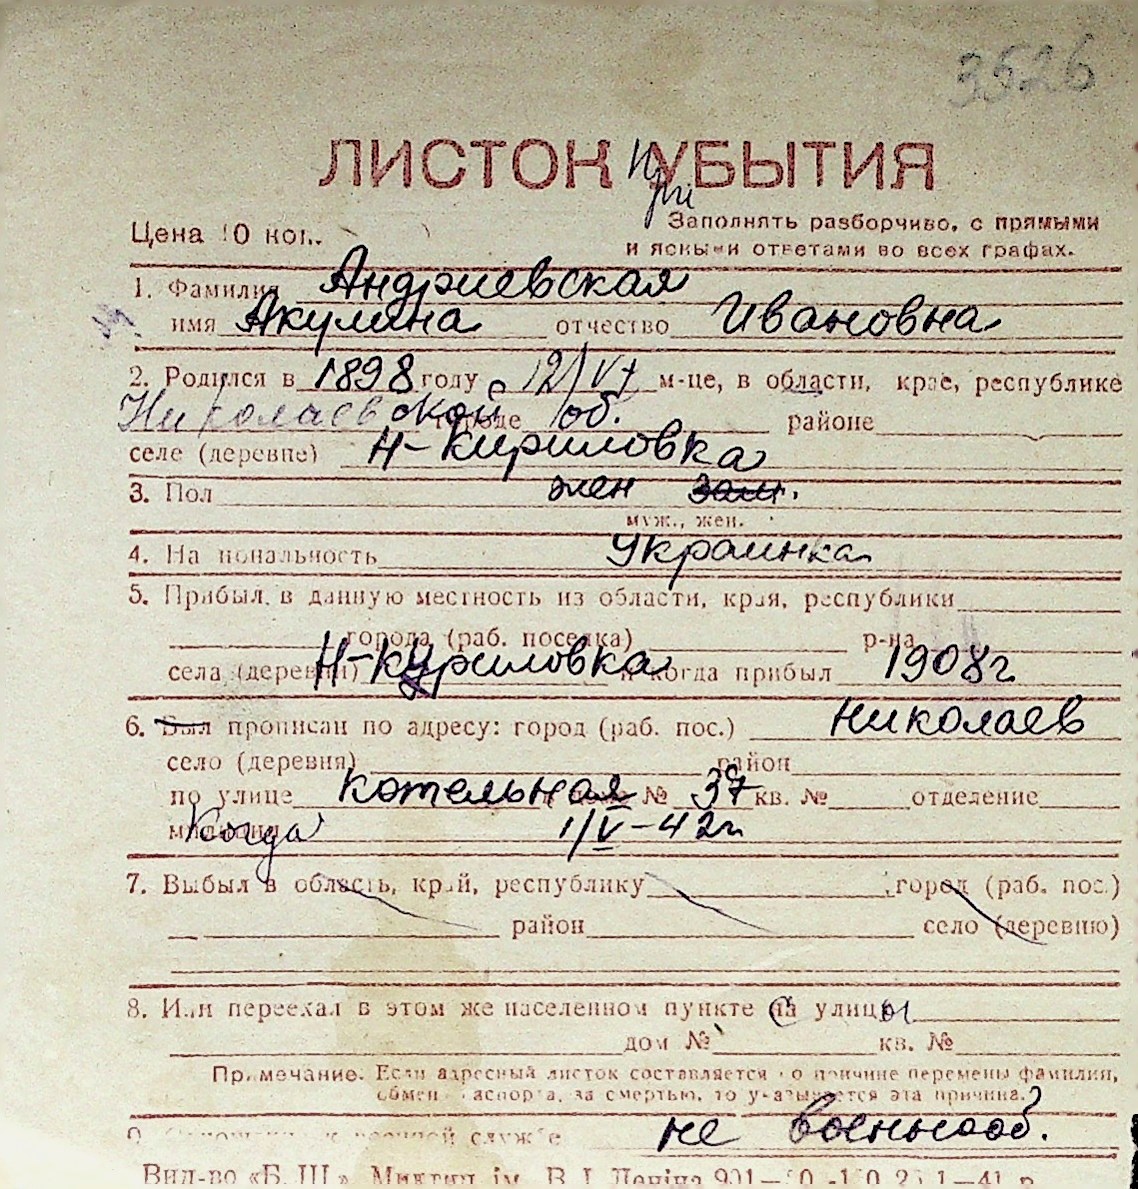 3526
ЛИСТОК при УБЫТИЯ
Цена 10 коп.
Заполнять разборчиво, с прямыми
и ясными ответами во всех графах.
1. Фамилия Андриевская
имя Акулина отчество Ивановна
2. Родился в 1898 году 12/VI м-це, в области, крае, республике
Николаевской об. городе районе
селе (деревне) Н-Кириловка
3. Пол жен зам.
муж., жен.
4. Национальность Украинка
5. Прибыл в данную местность из области, края, республики
города (раб. поселка) р-на
села (деревни) Н-Куриловка и когда прибыл 1908 г
6. Был прописан по адресу: город (раб. пос.) Николаев
село (деревня) район
по улице котельная № 37 кв. № отделение
милиции Когда 1/V-42 г
7. Выбыл в область, край, республику город (раб. пос.)
район село (деревню)
8. Или переехал в этом же населенном пункте с улицы
дом № кв. №
Примечание. Если адресный листок составляется по причине перемены фамилии,
обмена паспорта, за смертью, то указывается эта причина.
9. Отношение к военной службе не военнооб.
Вид-во «Б. Ш.» Миктип. ім. В. І. Леніна